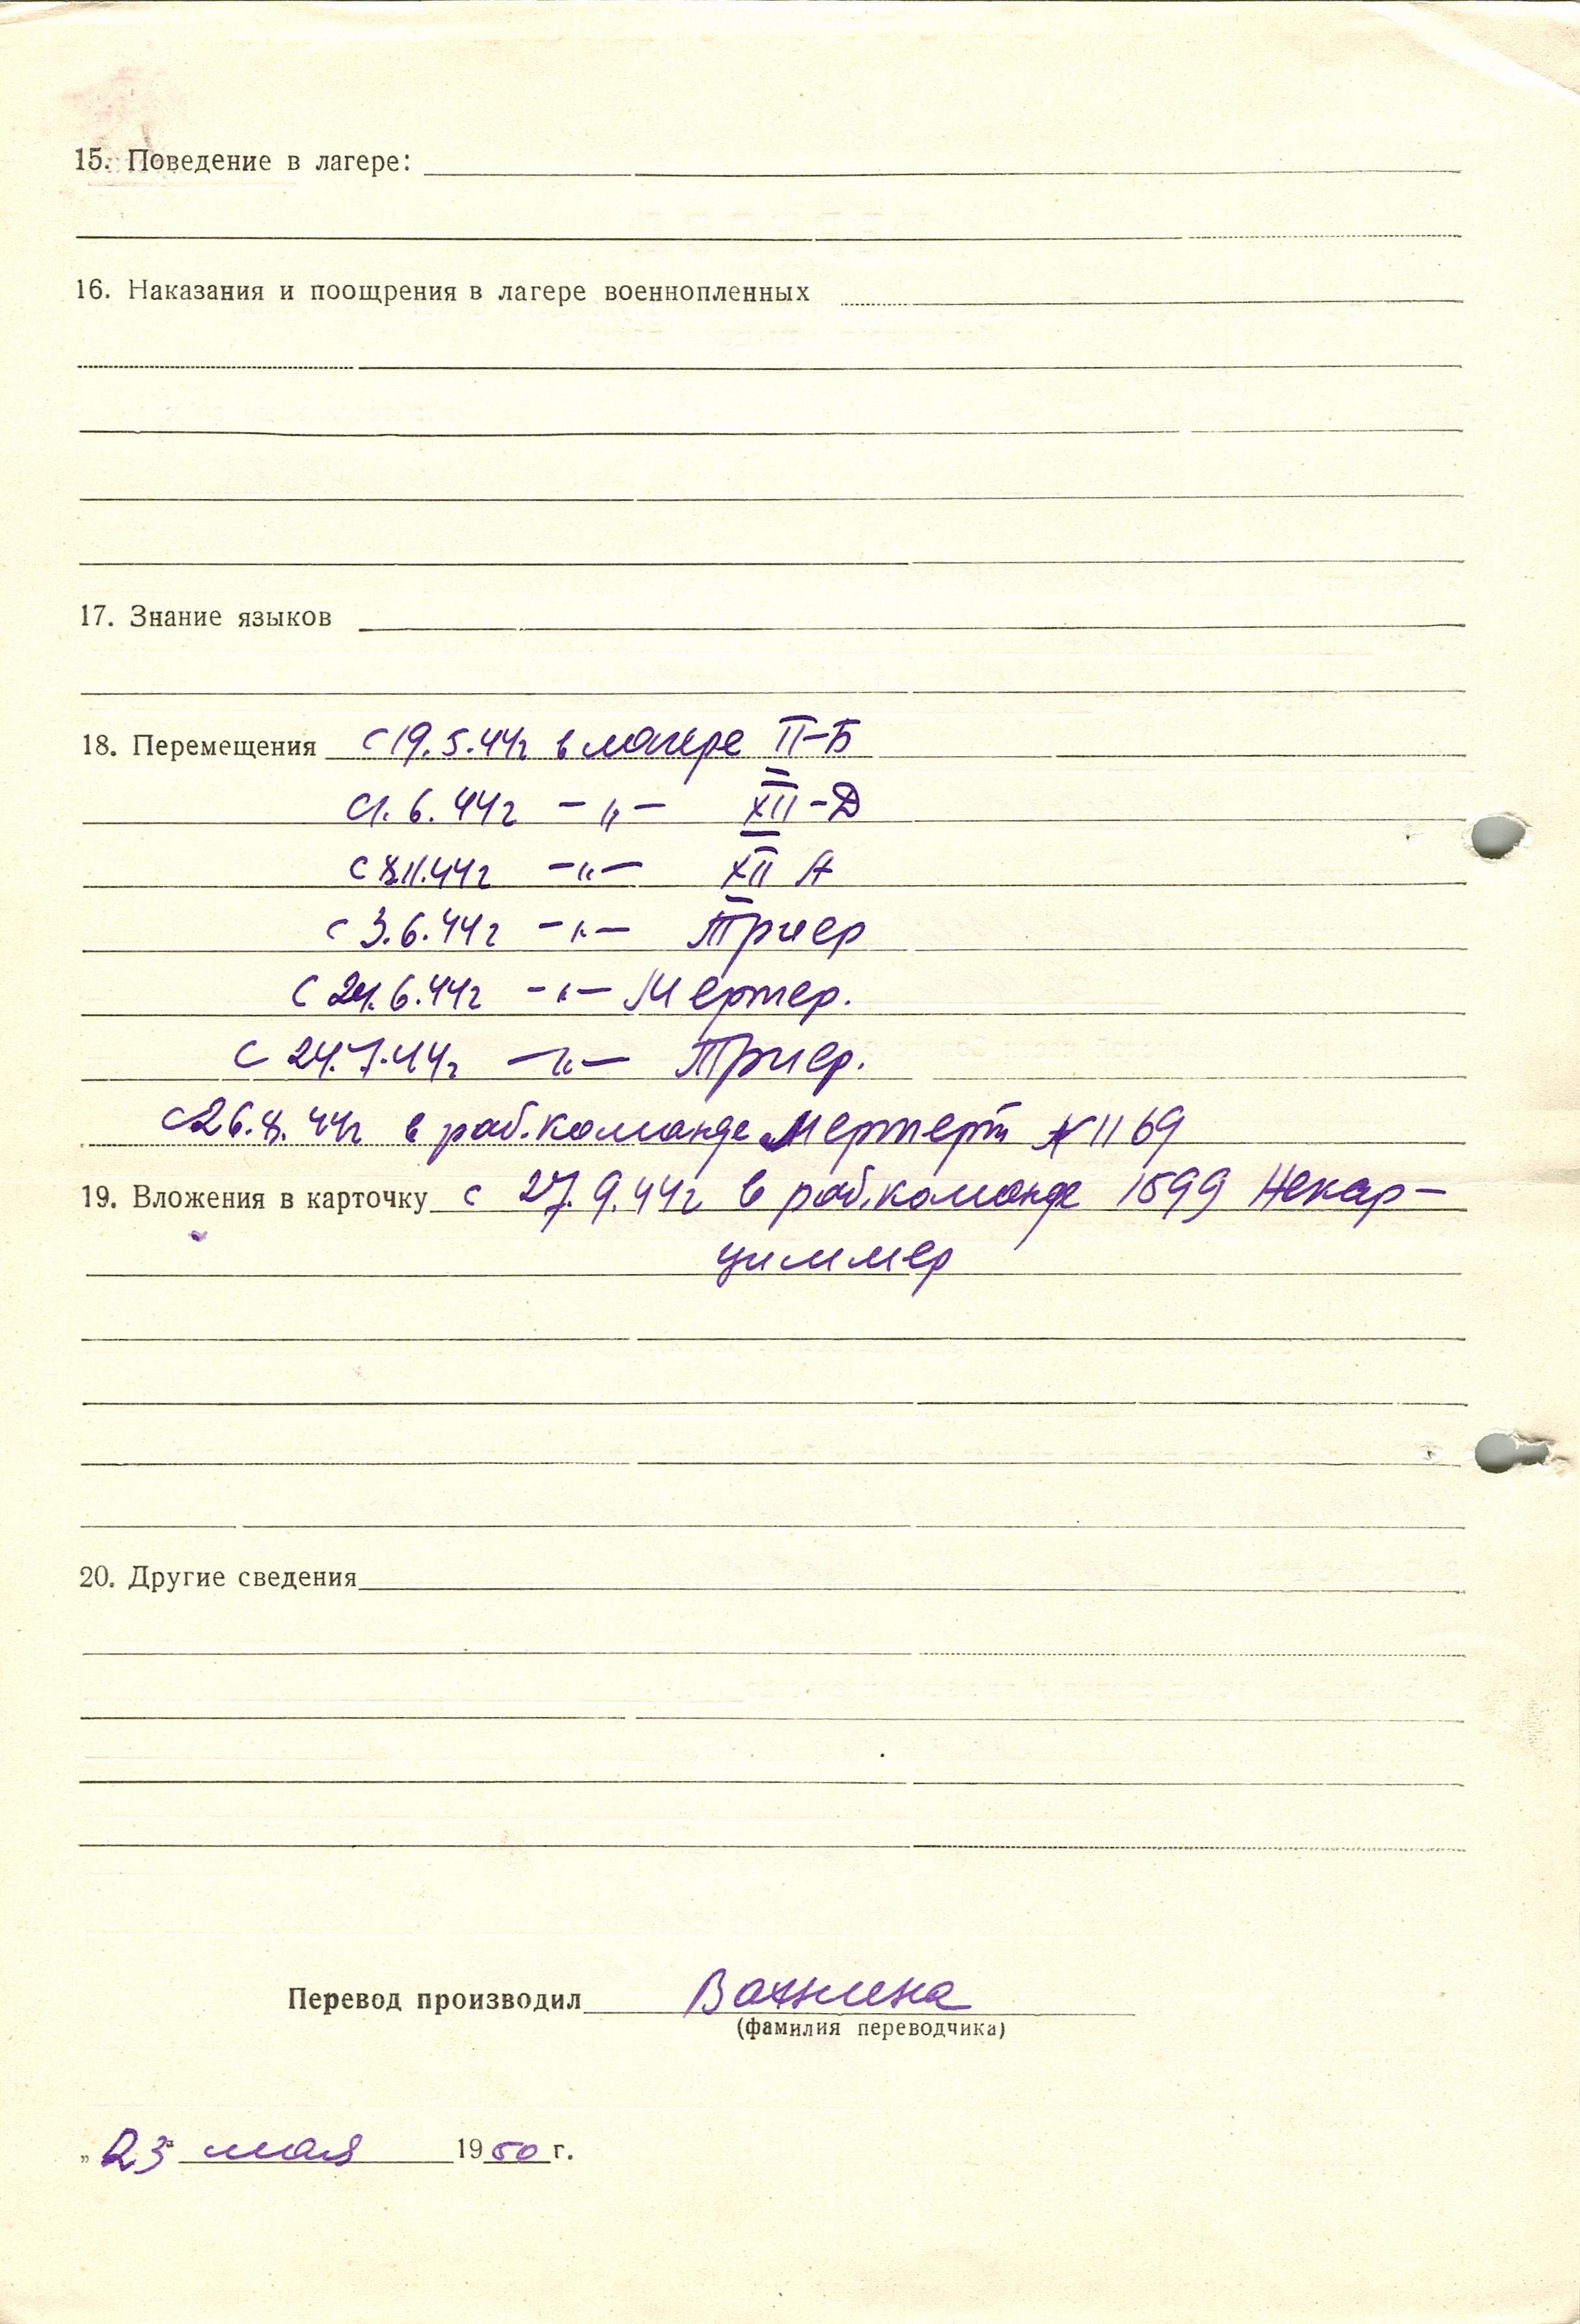 15. Поведение в лагере:
16. Наказания и поощрения в лагере военнопленных
17. Знание языков
18. Перемещения с 19.5.44г в лагере II-Б
с 1.6.44г –„– XII-Д
с 8.11.44г –„– XII А
с 3.6.44г –„– Триер
с 24.6.44г –„– Мертер.
с 24.7.44г –„– Триер.
с 26.8.44г в раб.команде Мертерт № 1169
19. Вложения в карточку с 27.9.44г в раб.команде 1599 Некар-
циммер
20. Другие сведения
Перевод производил
(фамилия переводчика)
„23" мая 1950 г.